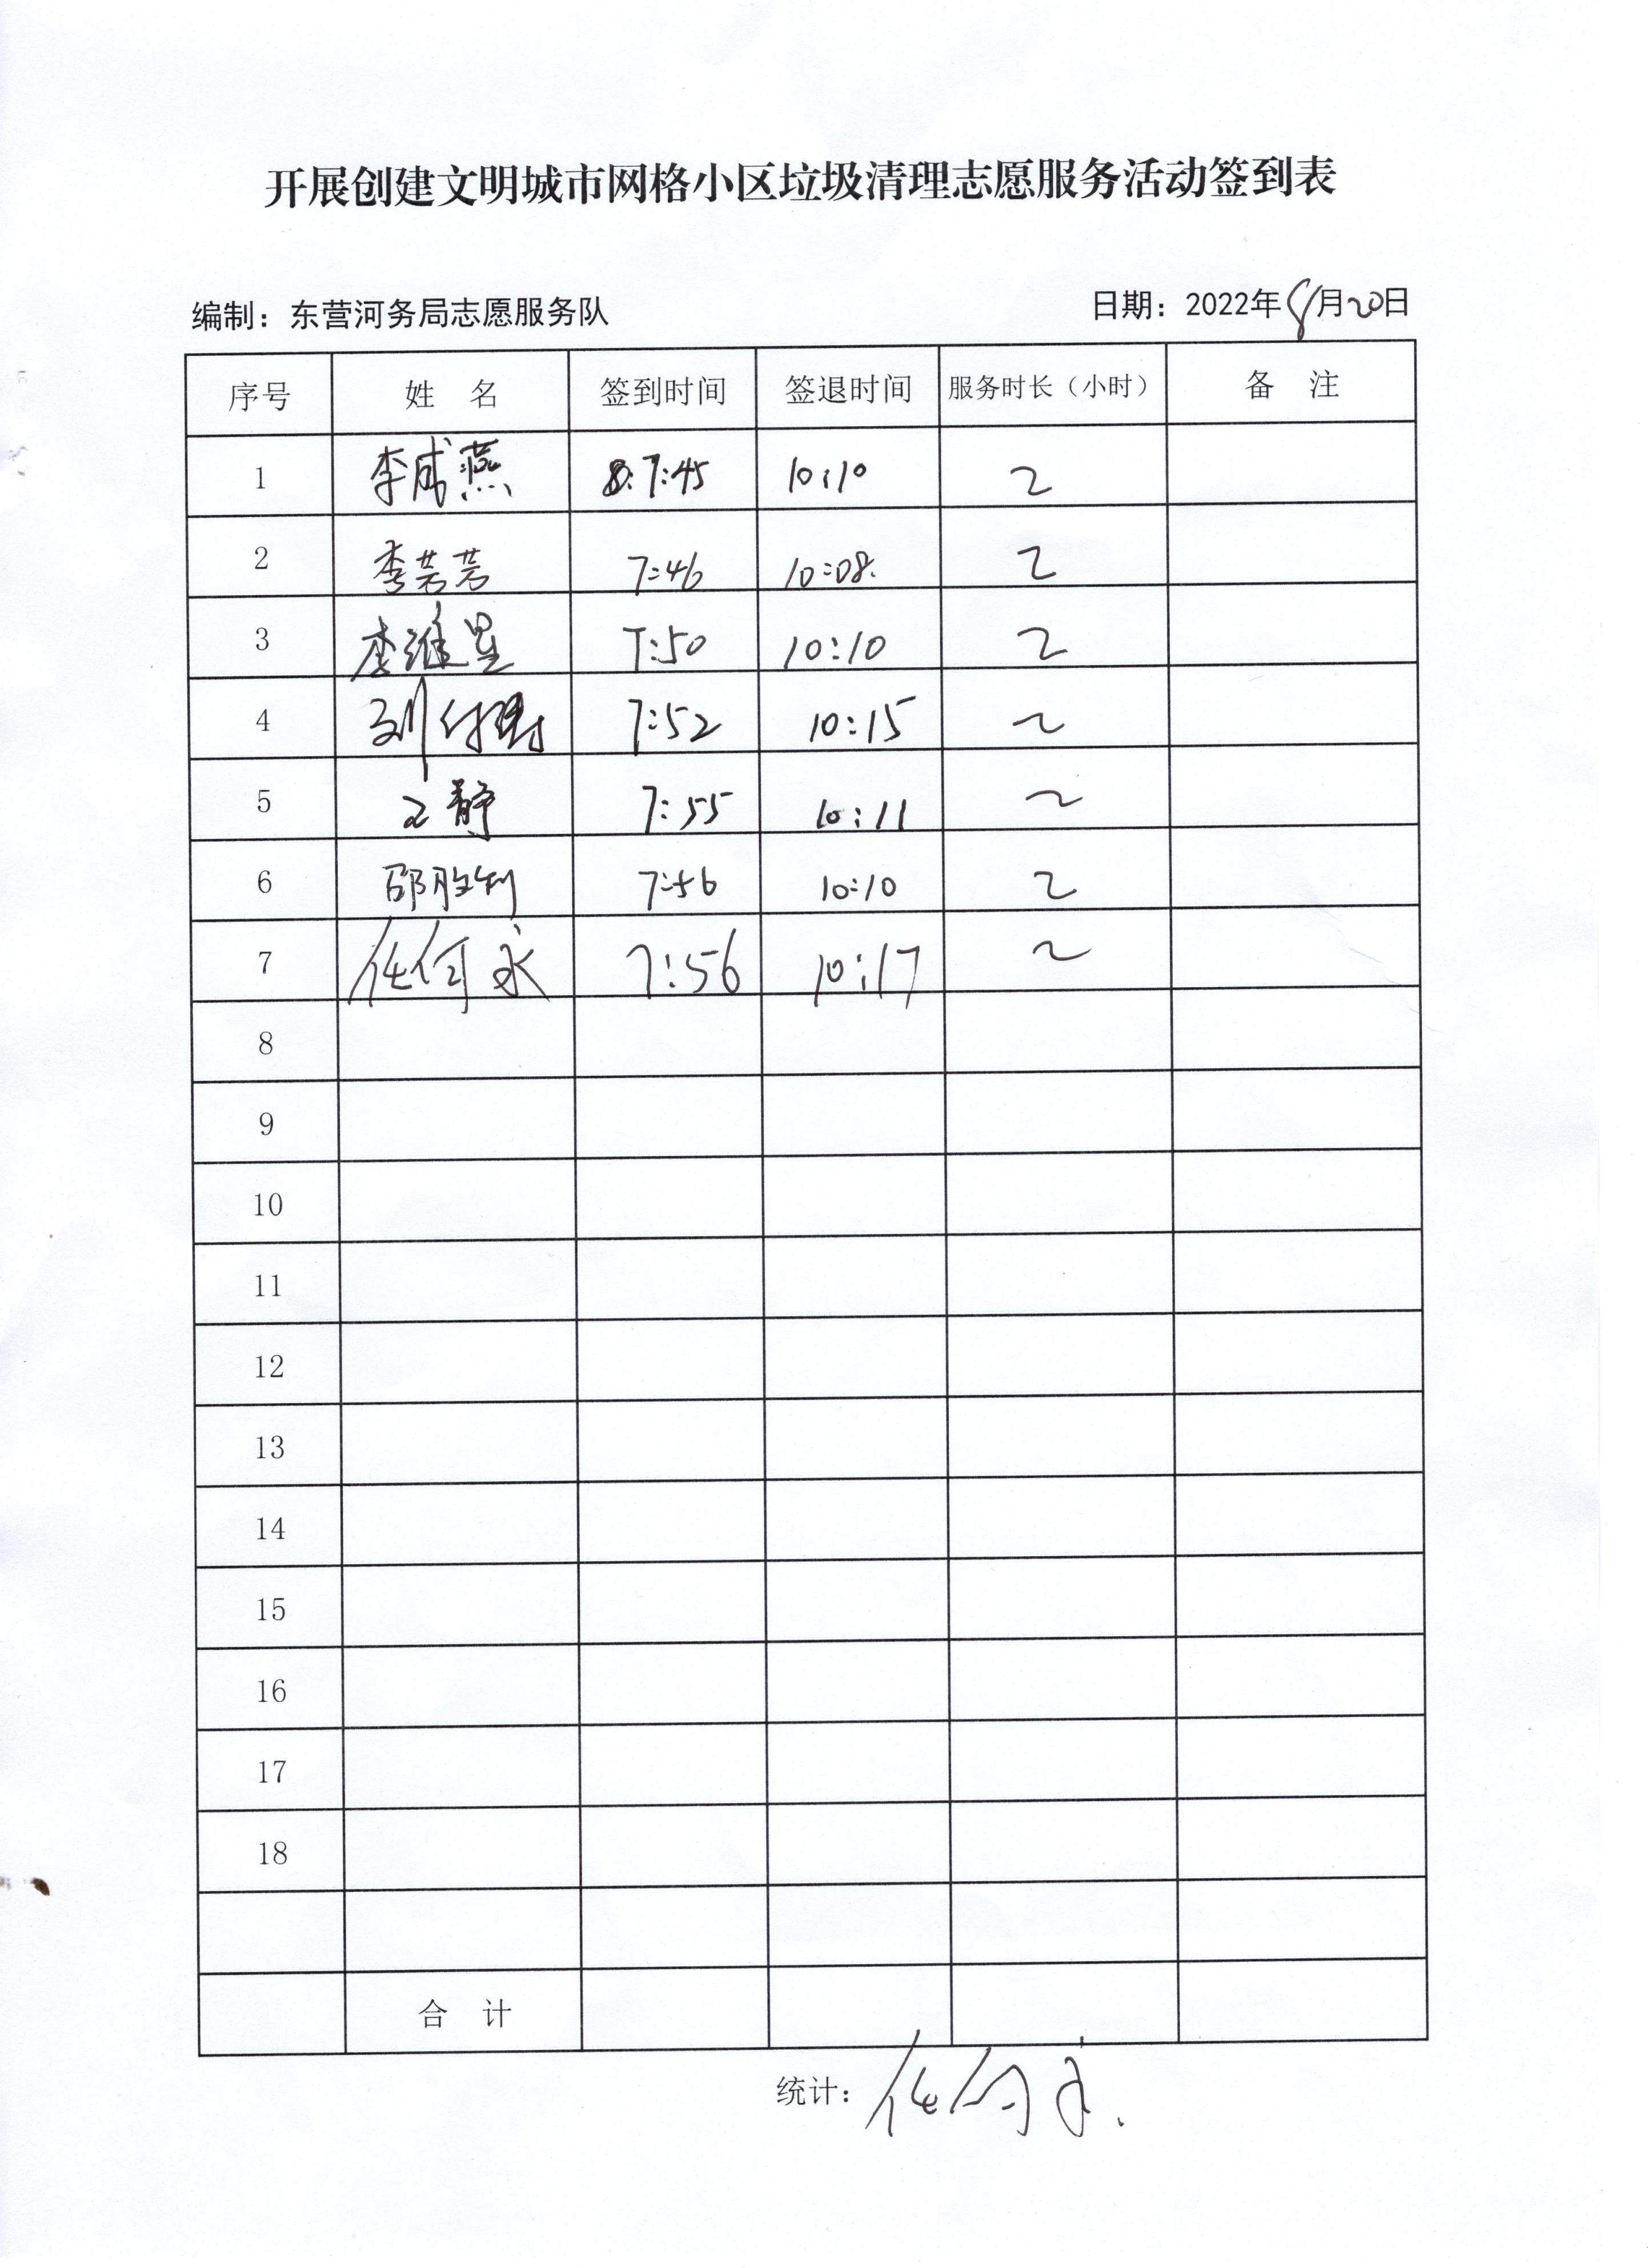 开展创建文明城市网格小区垃圾清理志愿服务活动签到表
编制：东营河务局志愿服务队 日期：2022年8月20日
序号 姓 名 签到时间 签退时间 服务时长（小时） 备 注
1 李成燕 8:7:45 10:10 2
2 李芸芸 7:46 10:08. 2
3 李维星 7:50 10:10 2
4 刘 7:52 10:15 2
5 王静 7:55 10:11 2
6 邵胜利 7:56 10:10 2
7 任何永 7:56 10:17 2
8
9
10
11
12
13
14
15
16
17
18
合 计
统计：